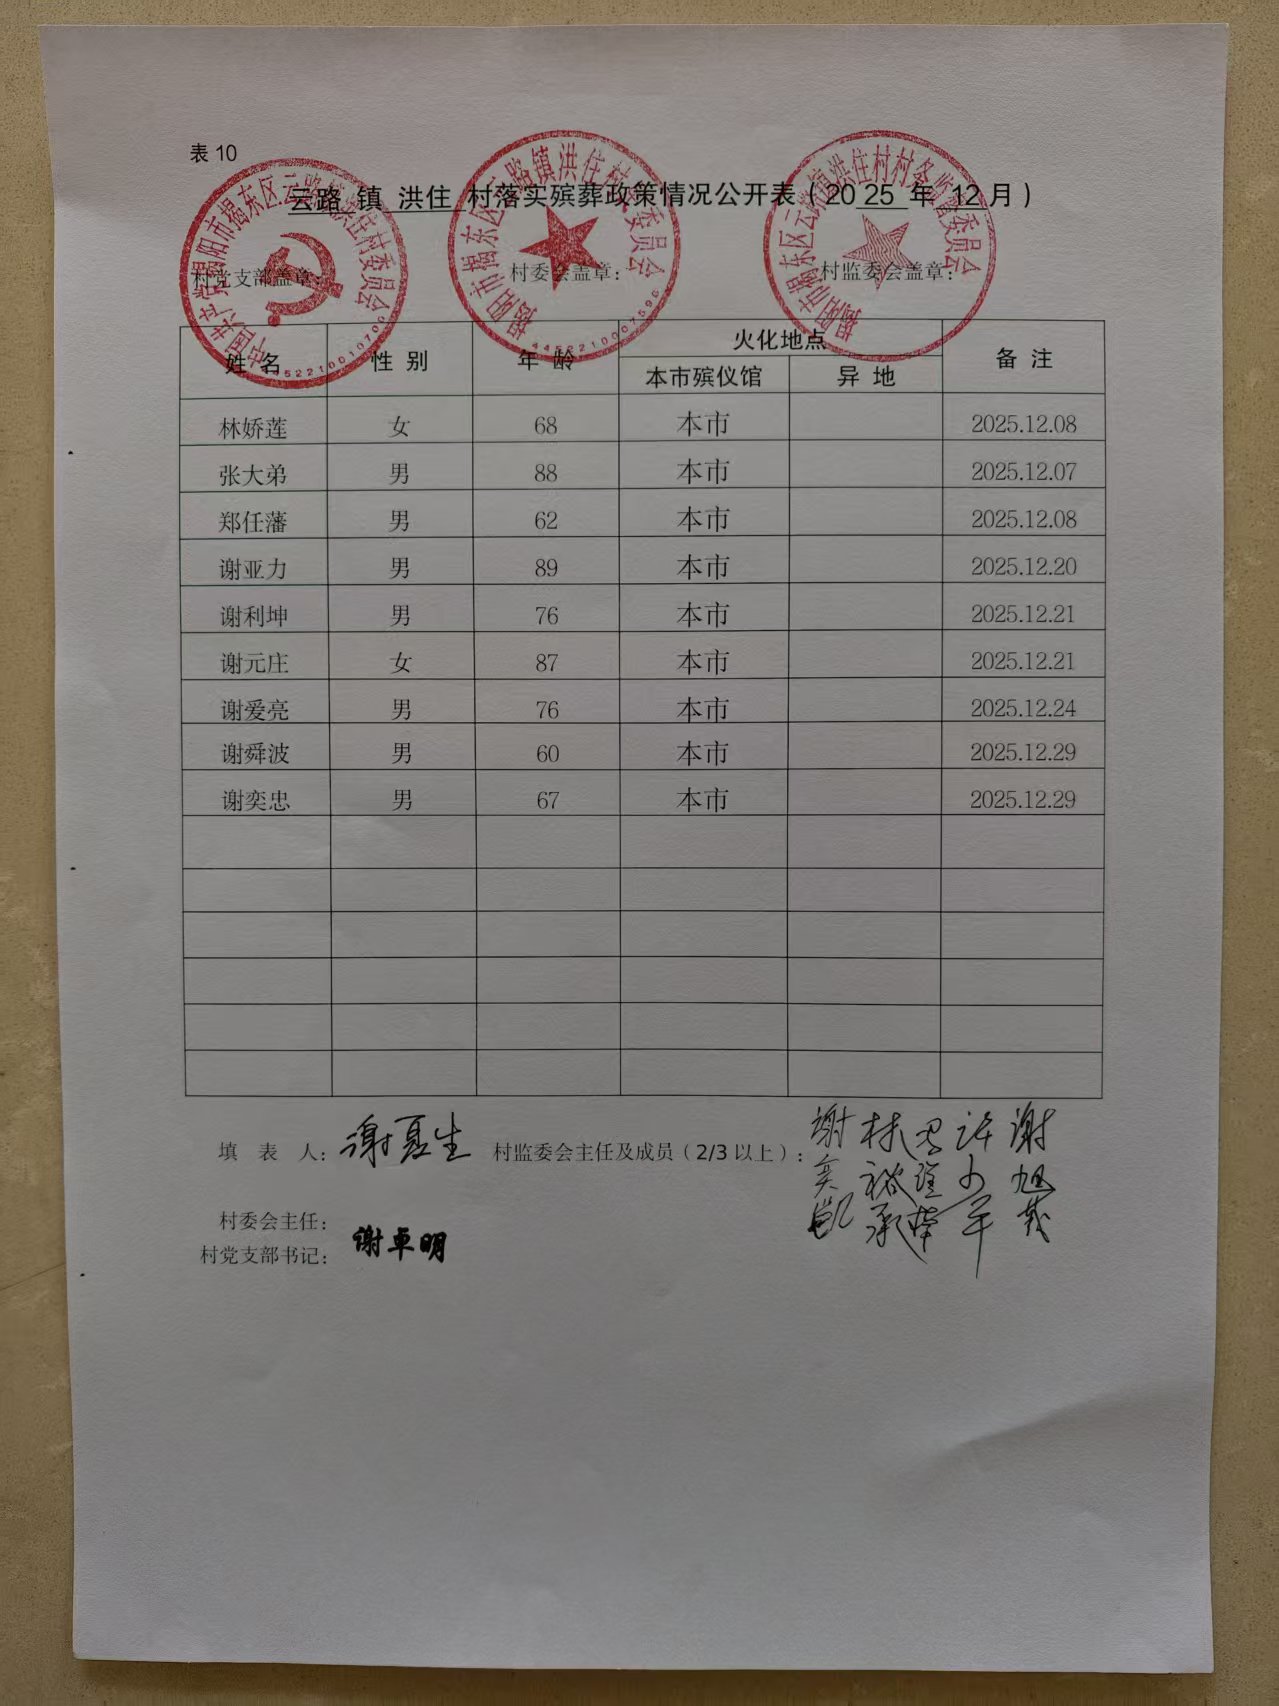 表 10
云路 镇 洪住 村落实殡葬政策情况公开表（2025 年 12 月）
村党支部盖章： 村委会盖章： 村监委会盖章：
中国共产党揭阳市揭东区云路镇洪住村委员会
揭阳市揭东区云路镇洪住村村民委员会
4452210007596
揭阳市揭东区云路镇洪住村村务监督委员会
姓 名 性 别 年 龄 火化地点 备 注
本市殡仪馆 异 地
林娇莲 女 68 本市 2025.12.08
张大弟 男 88 本市 2025.12.07
郑任藩 男 62 本市 2025.12.08
谢亚力 男 89 本市 2025.12.20
谢利坤 男 76 本市 2025.12.21
谢元庄 女 87 本市 2025.12.21
谢爱亮 男 76 本市 2025.12.24
谢舜波 男 60 本市 2025.12.29
谢奕忠 男 67 本市 2025.12.29
填 表 人：谢夏生 村监委会主任及成员（2/3 以上）：谢奕凯 林裕承 谢旭
村委会主任：
村党支部书记： 谢卓明